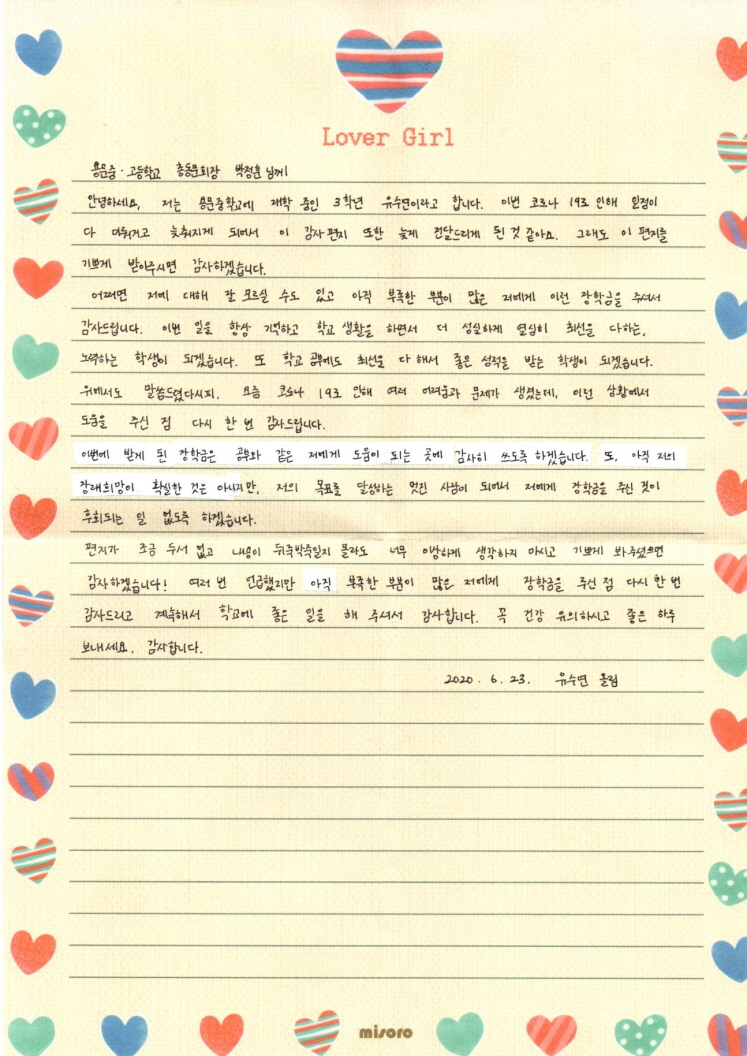 Lover Girl
용문중·고등학교 총동문회장 박정훈 님께
안녕하세요, 저는 용문중학교에 재학 중인 3학년 유수연이라고 합니다. 이번 코로나 19로 인해 일정이
다 미뤄지고 늦춰지게 되어서 이 감사편지 또한 늦게 전달드리게 된 것 같아요. 그래도 이 편지를
기쁘게 받아주시면 감사하겠습니다.
어쩌면 저에 대해 잘 모르실 수도 있고 아직 부족한 부분이 많은 저에게 이런 장학금을 주셔서
감사드립니다. 이번 일을 항상 기억하고 학교 생활을 하면서 더 성실하게 열심히 최선을 다하는,
노력하는 학생이 되겠습니다. 또 학교 공부에도 최선을 다 해서 좋은 성적을 받는 학생이 되겠습니다.
위에서도 말씀드렸다시피, 요즘 코로나 19로 인해 여러 어려움과 문제가 생겼는데, 이런 상황에서
도움을 주신 점 다시 한 번 감사드립니다.
이번에 받게 된 장학금은 공부와 같은 저에게 도움이 되는 곳에 감사히 쓰도록 하겠습니다. 또, 아직 저의
장래희망이 확실한 것은 아니지만, 저의 목표를 달성하는 멋진 사람이 되어서 저에게 장학금을 주신 것이
후회되는 일 없도록 하겠습니다.
편지가 조금 두서 없고 내용이 뒤죽박죽일지 몰라도 너무 이상하게 생각하지 마시고 기쁘게 봐주셨으면
감사하겠습니다! 여러 번 언급했지만 아직 부족한 부분이 많은 저에게 장학금을 주신 점 다시 한 번
감사드리고 계속해서 학교에 좋은 일을 해 주셔서 감사합니다. 꼭 건강 유의하시고 좋은 하루
보내세요. 감사합니다.
2020. 6. 23. 유수연 올림
misoro